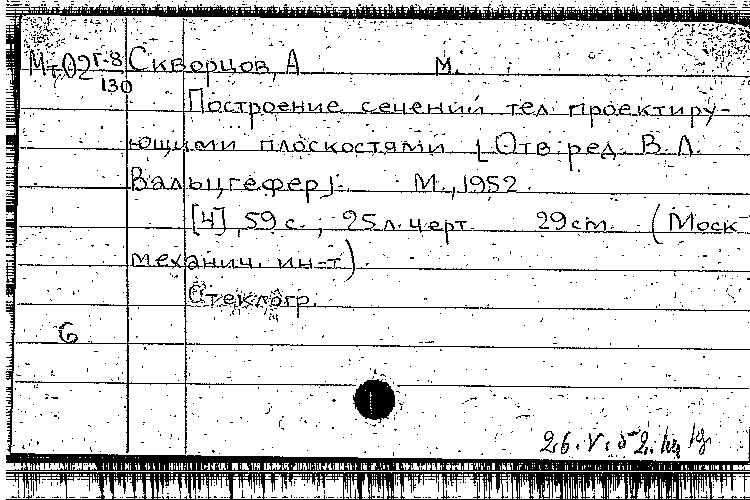 М-02 Г-8 Скворцов, А. М.
130
Построение сечений тел проектиру-
ющими плоскостями [Отв. ред. В. Л.
Вальцгефер]. М., 1952.
[4], 59 с., 25 л. черт. 29 см. (Моск.
механич. ин-т).
Стеклогр.
6
26.V.52.